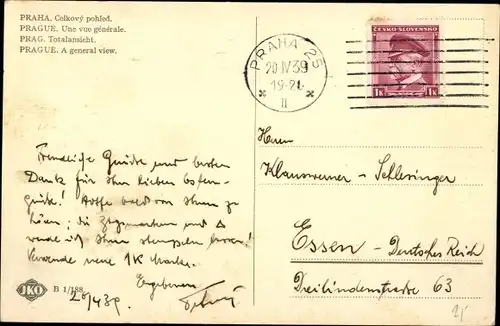 PRAHA. Celkový pohled.
PRAGUE. Une vue générale.
PRAG. Totalansicht.
PRAGUE. A general view.
PRAHA 25
20 IV 39
19-21
II
ČESKO-SLOVENSKO
1K 1K
Freundliche Grüsse und besten
Dank für Ihren lieben Oster-
gruß! Hoffe bald von Ihnen zu
hören; die
werde ich Ihnen stempeln lassen!
Verwende neue 1K Marke.
Ergebenen
20/4 39
Herrn
Klauswerner Schlesinger
Essen - Deutsches Reich
Dreilindenstrasse 63
JKO B 1/188